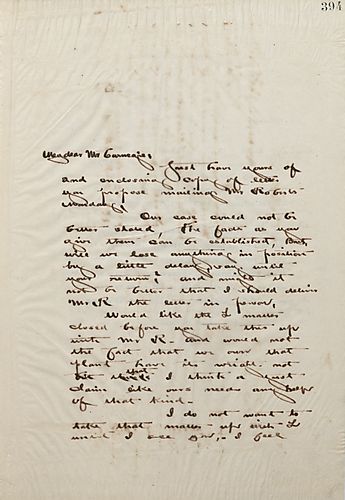 394
My dear Mr Carnegie:
Just have yours of
and enclosing copy of letter
you propose mailing Mr Roberts
Monday.
Our case could not be
better stated. The facts as you
give them can be established, But
will we lose anything in position
by a little delay, say until
you return, and would it
not be better that I should deliver
Mr R the letter in person,
Would like the L matter
closed before you take this up
with Mr R - and would not
the fact that we own that
plant have its weight, not
but that I think a just
claim like ours needs any helps
of that kind.
I do not want to
take that matter up with L
until I see you, - I feel